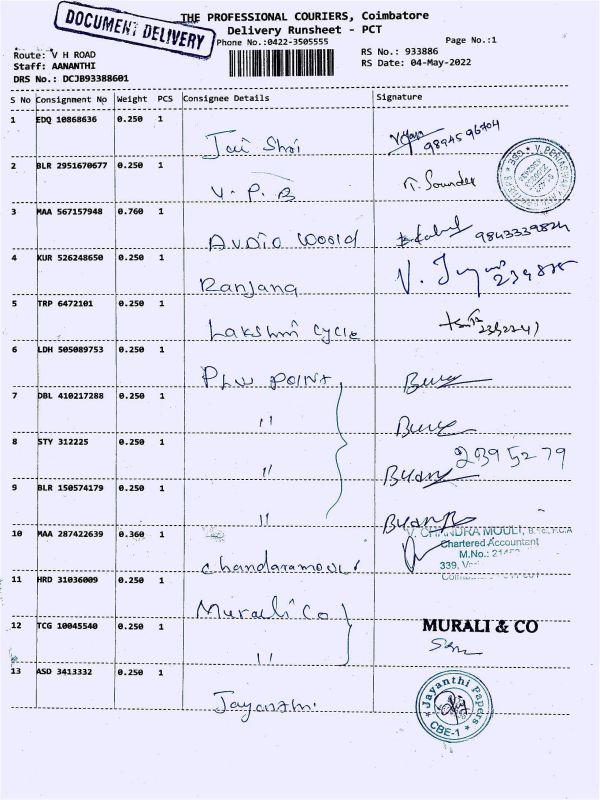 DOCUMENT DELIVERY
THE PROFESSIONAL COURIERS, Coimbatore
Delivery Runsheet - PCT
Phone No.:0422-3505555
Page No.:1
Route: V H ROAD
Staff: AANANTHI
DRS No.: DCJB93388601
RS No.: 933886
RS Date: 04-May-2022
S No Consignment No Weight PCS Consignee Details Signature
1 EDQ 10868636 0.250 1
Jai Shri 9894596704
2 BLR 2951670677 0.250 1
V. P. B T. Sounder
3 MAA 567157948 0.760 1
AUDIO World 9843339824
4 KUR 526248650 0.250 1
Ranjana
5 TRP 6472101 0.250 1
Lakshmi cycle
6 LDH 505089753 0.250 1
PLW POINT
7 DBL 410217288 0.250 1
"
8 STY 312225 0.250 1
" 2395279
9 BLR 150574179 0.250 1
"
10 MAA 287422639 0.360 1
V. CHANDRA MOULI,
Chartered Accountant
M.No.:
339,
Chandaramouli
11 HRD 31036009 0.250 1
Murali Co
12 TCG 10045540 0.250 1 MURALI & CO
"
13 ASD 3413332 0.250 1
Jayanthi
Jayanthi Papers
CBE-1